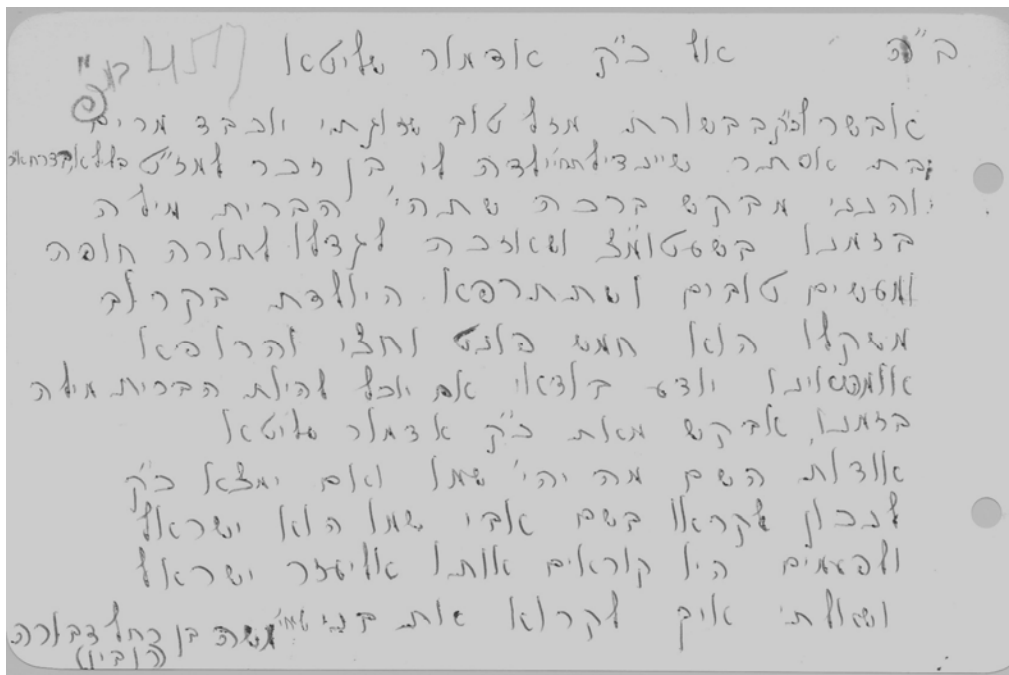 ב"ה אל כ"ק אדמור שליטא
אבשר לכ"ק בבשורת מזל טוב שזוגתי יוכבד מרים
בת אסתר שיינדיל תחי' ילדה לי בן זכר למז"ט
והנני מבקש ברכה שתהי' הברית מילה
בזמנו בשעטומ"צ ושאזכה לגדלו לתורה חופה
ומעשים טובים ושתתרפא היולדת בקרוב
משקלו הוא חמש פונט וחצי והרופא
יודע בודאי אם יוכל להיות הברית מילה
בזמנו, אבקש מאת כ"ק אדמור שליטא
אודות השם מה יהי' שמו ואם ימצא כ"ק
לנכון לקראו בשם אבי שמו הוא ישראל
ולפעמים היו קוראים אותו אליעזר ישראל
ושאלתי איך לקרוא את בני שיחי'
משה בן רחל דבורה
(רובין)